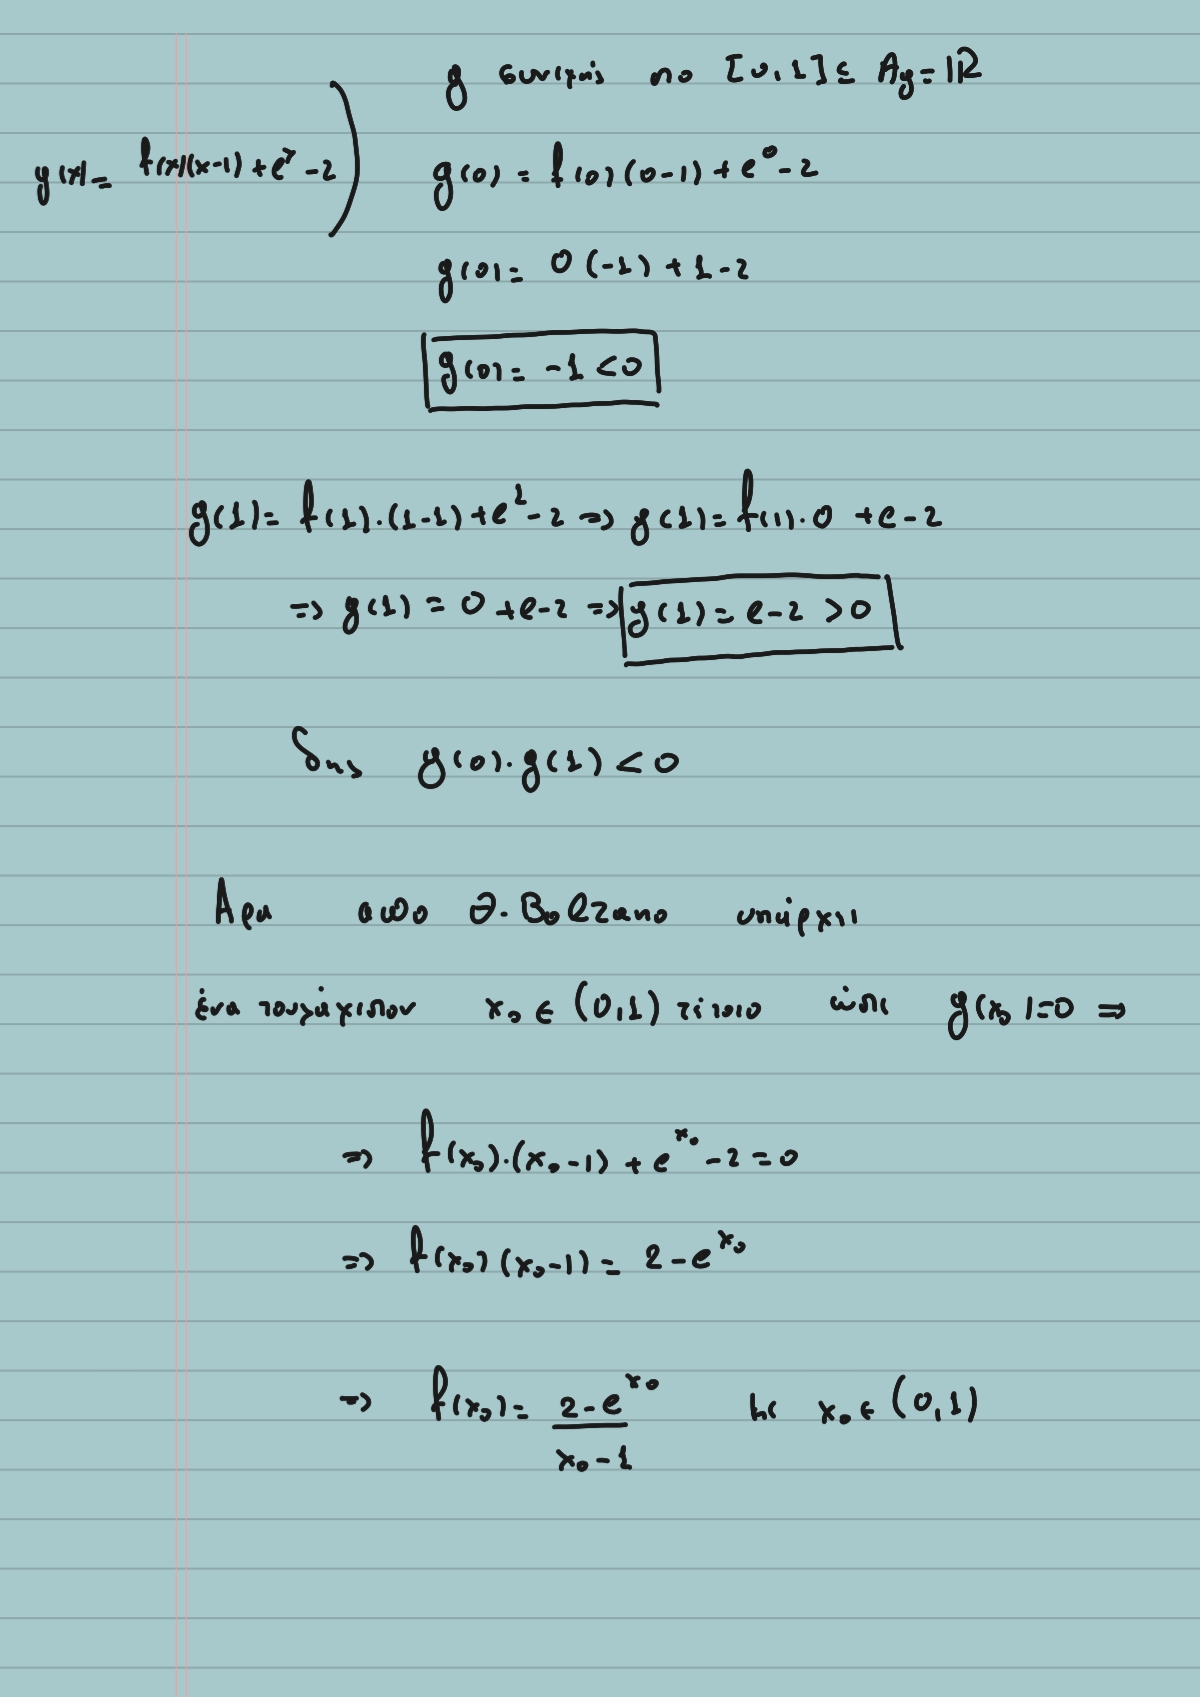 g συνεχής στο [0,1] ⊆ Ag = ℝ
g(x) = f(x)(x-1) + e^x - 2
g(0) = f(0)(0-1) + e^0 - 2
g(0) = 0(-1) + 1 - 2
g(0) = -1 < 0
g(1) = f(1)·(1-1) + e^1 - 2 ⇒ g(1) = f(1)·0 + e - 2
⇒ g(1) = 0 + e - 2 ⇒ g(1) = e - 2 > 0
δηλ g(0)·g(1) < 0
Άρα από Θ. Bolzano υπάρχει
ένα τουλάχιστον x₀ ∈ (0,1) τέτοιο ώστε g(x₀) = 0 ⇒
⇒ f(x₀)·(x₀-1) + e^x₀ - 2 = 0
⇒ f(x₀)(x₀-1) = 2 - e^x₀
⇒ f(x₀) = (2 - e^x₀)/(x₀ - 1) με x₀ ∈ (0,1)